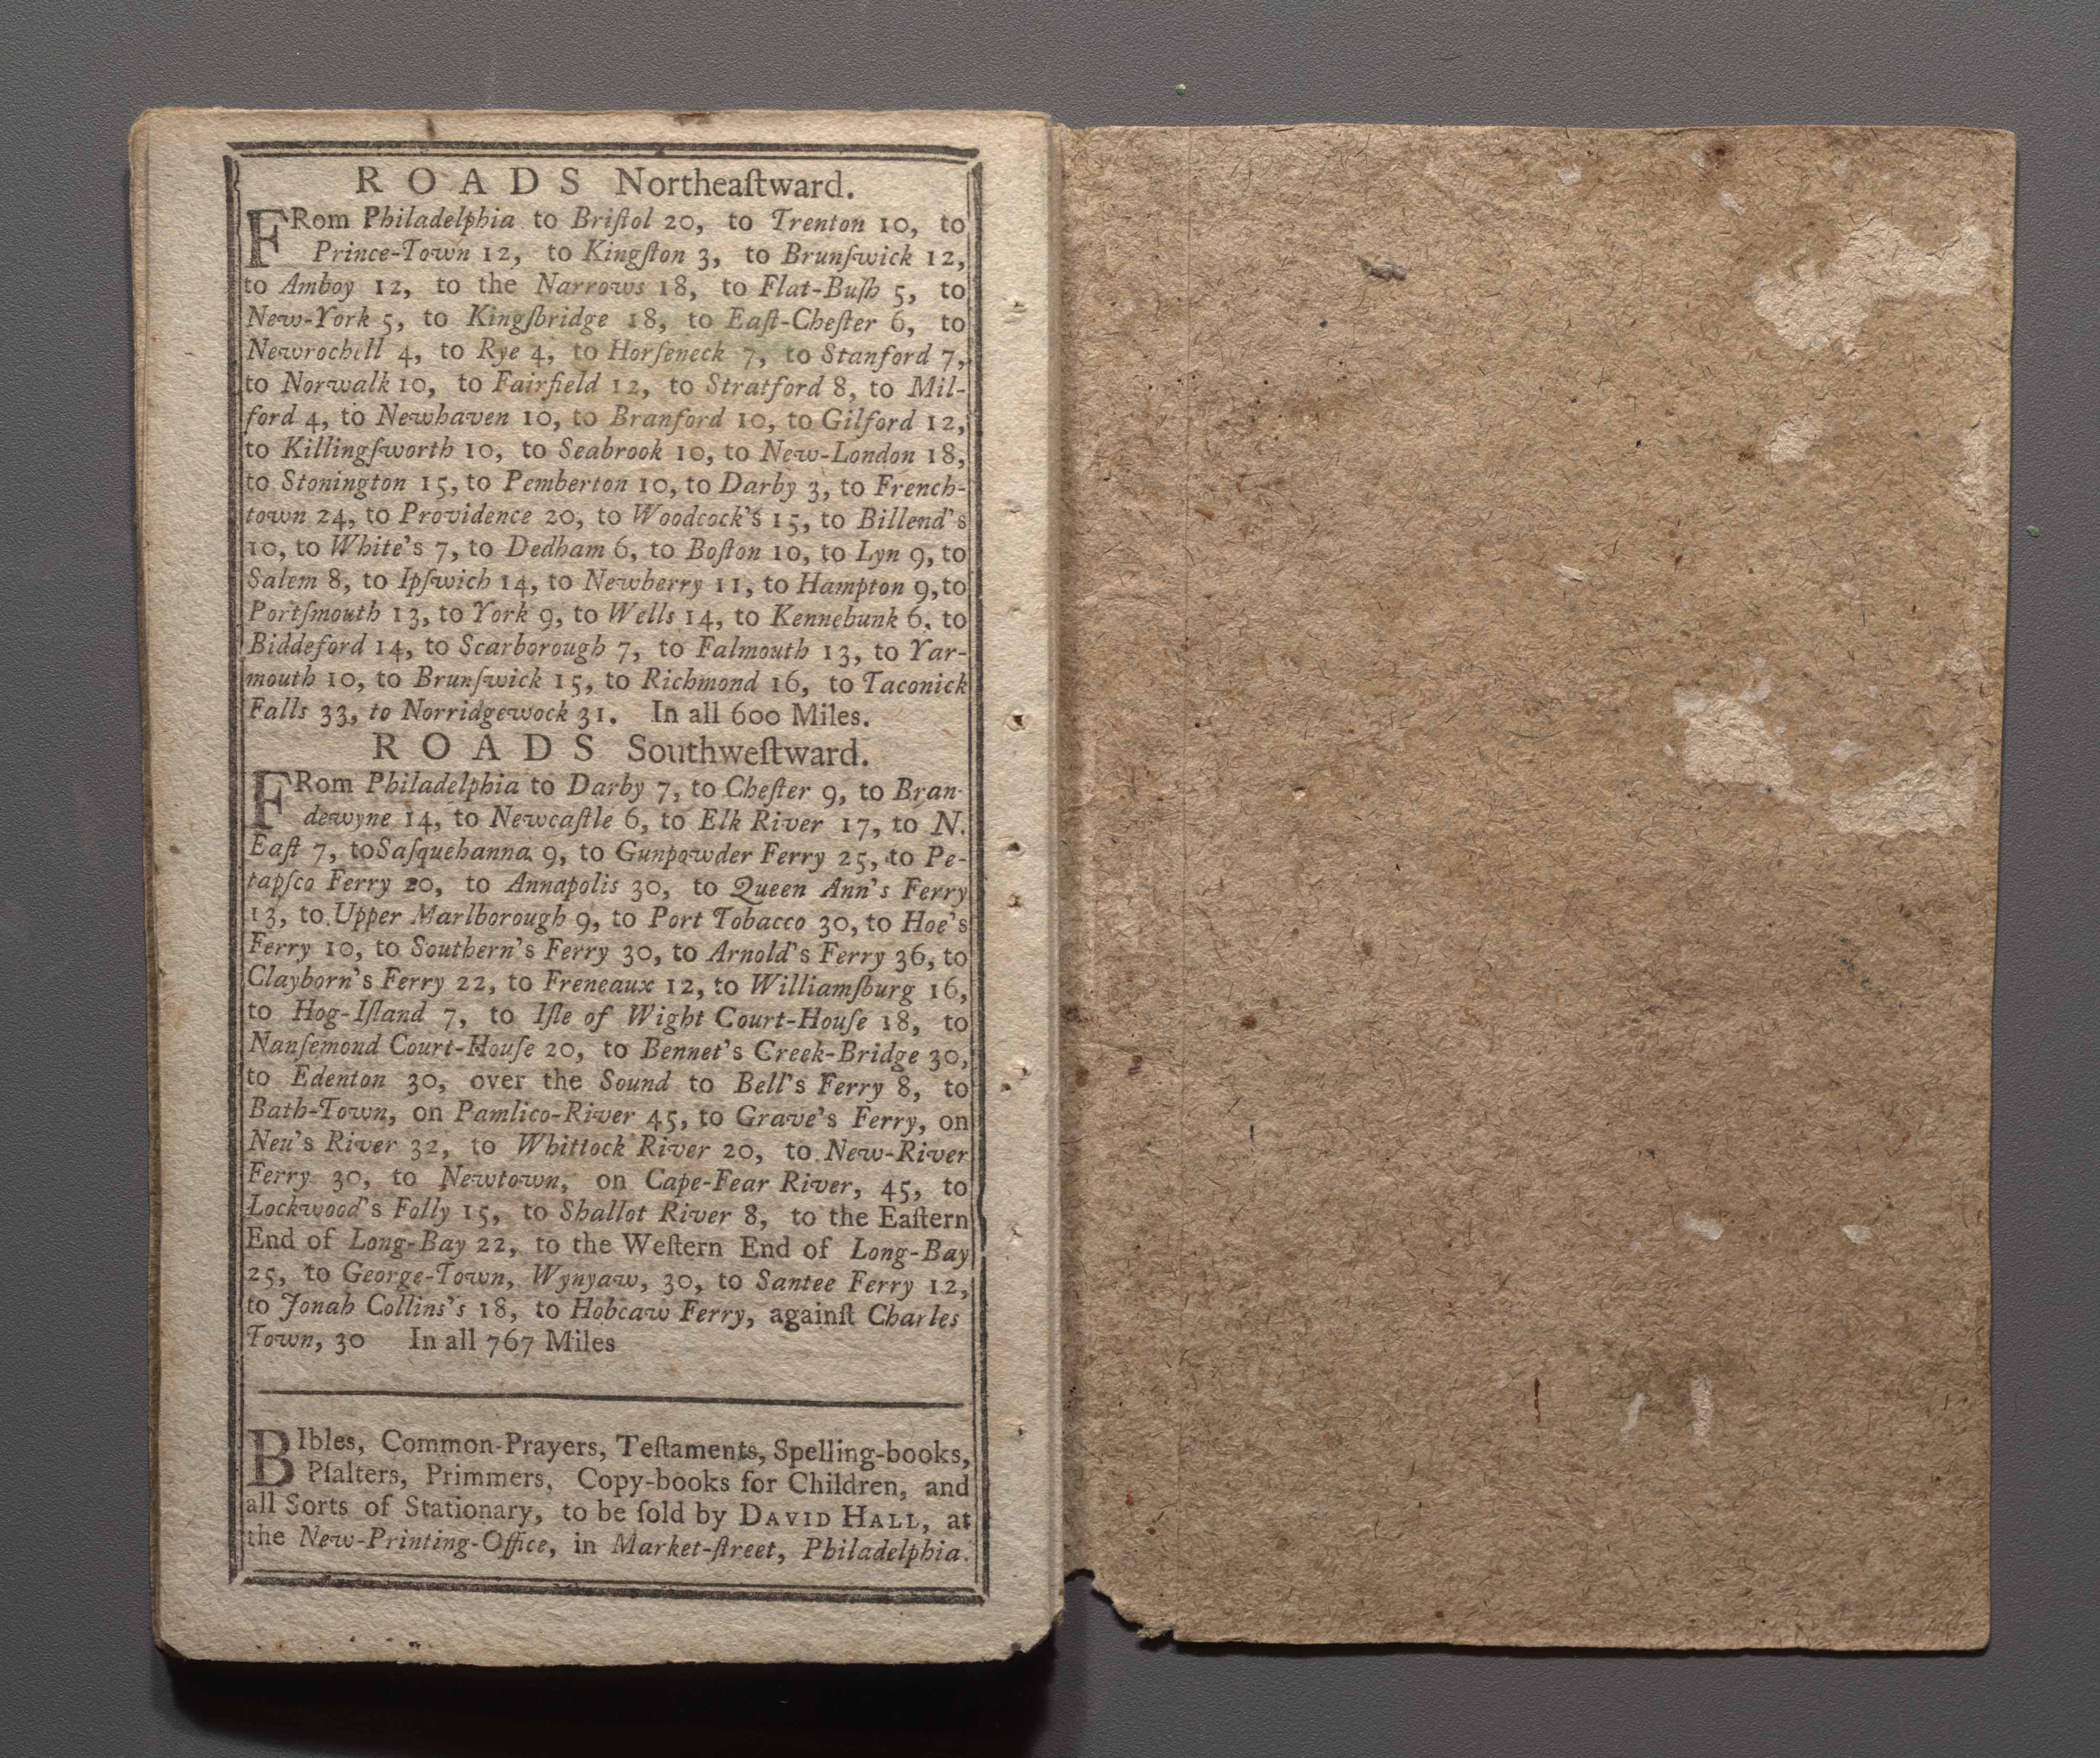 ROADS Northeaſtward.
FRom Philadelphia to Briſtol 20, to Trenton 10, to
Prince-Town 12, to Kingſton 3, to Brunſwick 12,
to Amboy 12, to the Narrows 18, to Flat-Buſh 5, to
New-York 5, to Kingſbridge 18, to Eaſt-Cheſter 6, to
Newrochell 4, to Rye 4, to Horſeneck 7, to Stanford 7,
to Norwalk 10, to Fairfield 12, to Stratford 8, to Mil-
ford 4, to Newhaven 10, to Branford 10, to Gilford 12,
to Killingſworth 10, to Seabrook 10, to New-London 18,
to Stonington 15, to Pemberton 10, to Darby 3, to French-
town 24, to Providence 20, to Woodcock's 15, to Billend's
10, to White's 7, to Dedham 6, to Boſton 10, to Lyn 9, to
Salem 8, to Ipſwich 14, to Newberry 11, to Hampton 9, to
Portſmouth 13, to York 9, to Wells 14, to Kennebunk 6, to
Biddeford 14, to Scarborough 7, to Falmouth 13, to Yar-
mouth 10, to Brunſwick 15, to Richmond 16, to Taconick
Falls 33, to Norridgewock 31. In all 600 Miles.
ROADS Southweſtward.
FRom Philadelphia to Darby 7, to Cheſter 9, to Bran-
dewyne 14, to Newcaſtle 6, to Elk River 17, to N.
Eaſt 7, to Saſquehanna 9, to Gunpowder Ferry 25, to Pe-
tapſco Ferry 20, to Annapolis 30, to Queen Ann's Ferry
13, to Upper Marlborough 9, to Port Tobacco 30, to Hoe's
Ferry 10, to Southern's Ferry 30, to Arnold's Ferry 36, to
Clayborn's Ferry 22, to Freneaux 12, to Williamſburg 16,
to Hog-Iſland 7, to Iſle of Wight Court-Houſe 18, to
Nanſemond Court-Houſe 20, to Bennet's Creek-Bridge 30,
to Edenton 30, over the Sound to Bell's Ferry 8, to
Bath-Town, on Pamlico-River 45, to Grave's Ferry, on
Neu's River 32, to Whittock River 20, to New-River
Ferry 30, to Newtown, on Cape-Fear River, 45, to
Lockwood's Folly 15, to Shallot River 8, to the Eaſtern
End of Long-Bay 22, to the Weſtern End of Long-Bay
25, to George-Town, Wynyaw, 30, to Santee Ferry 12,
to Jonah Collins's 18, to Hobcaw Ferry, againſt Charles
Town, 30 In all 767 Miles
BIbles, Common-Prayers, Teſtaments, Spelling-books,
Pſalters, Primmers, Copy-books for Children, and
all Sorts of Stationary, to be ſold by DAVID HALL, at
the New-Printing-Office, in Market-ſtreet, Philadelphia.